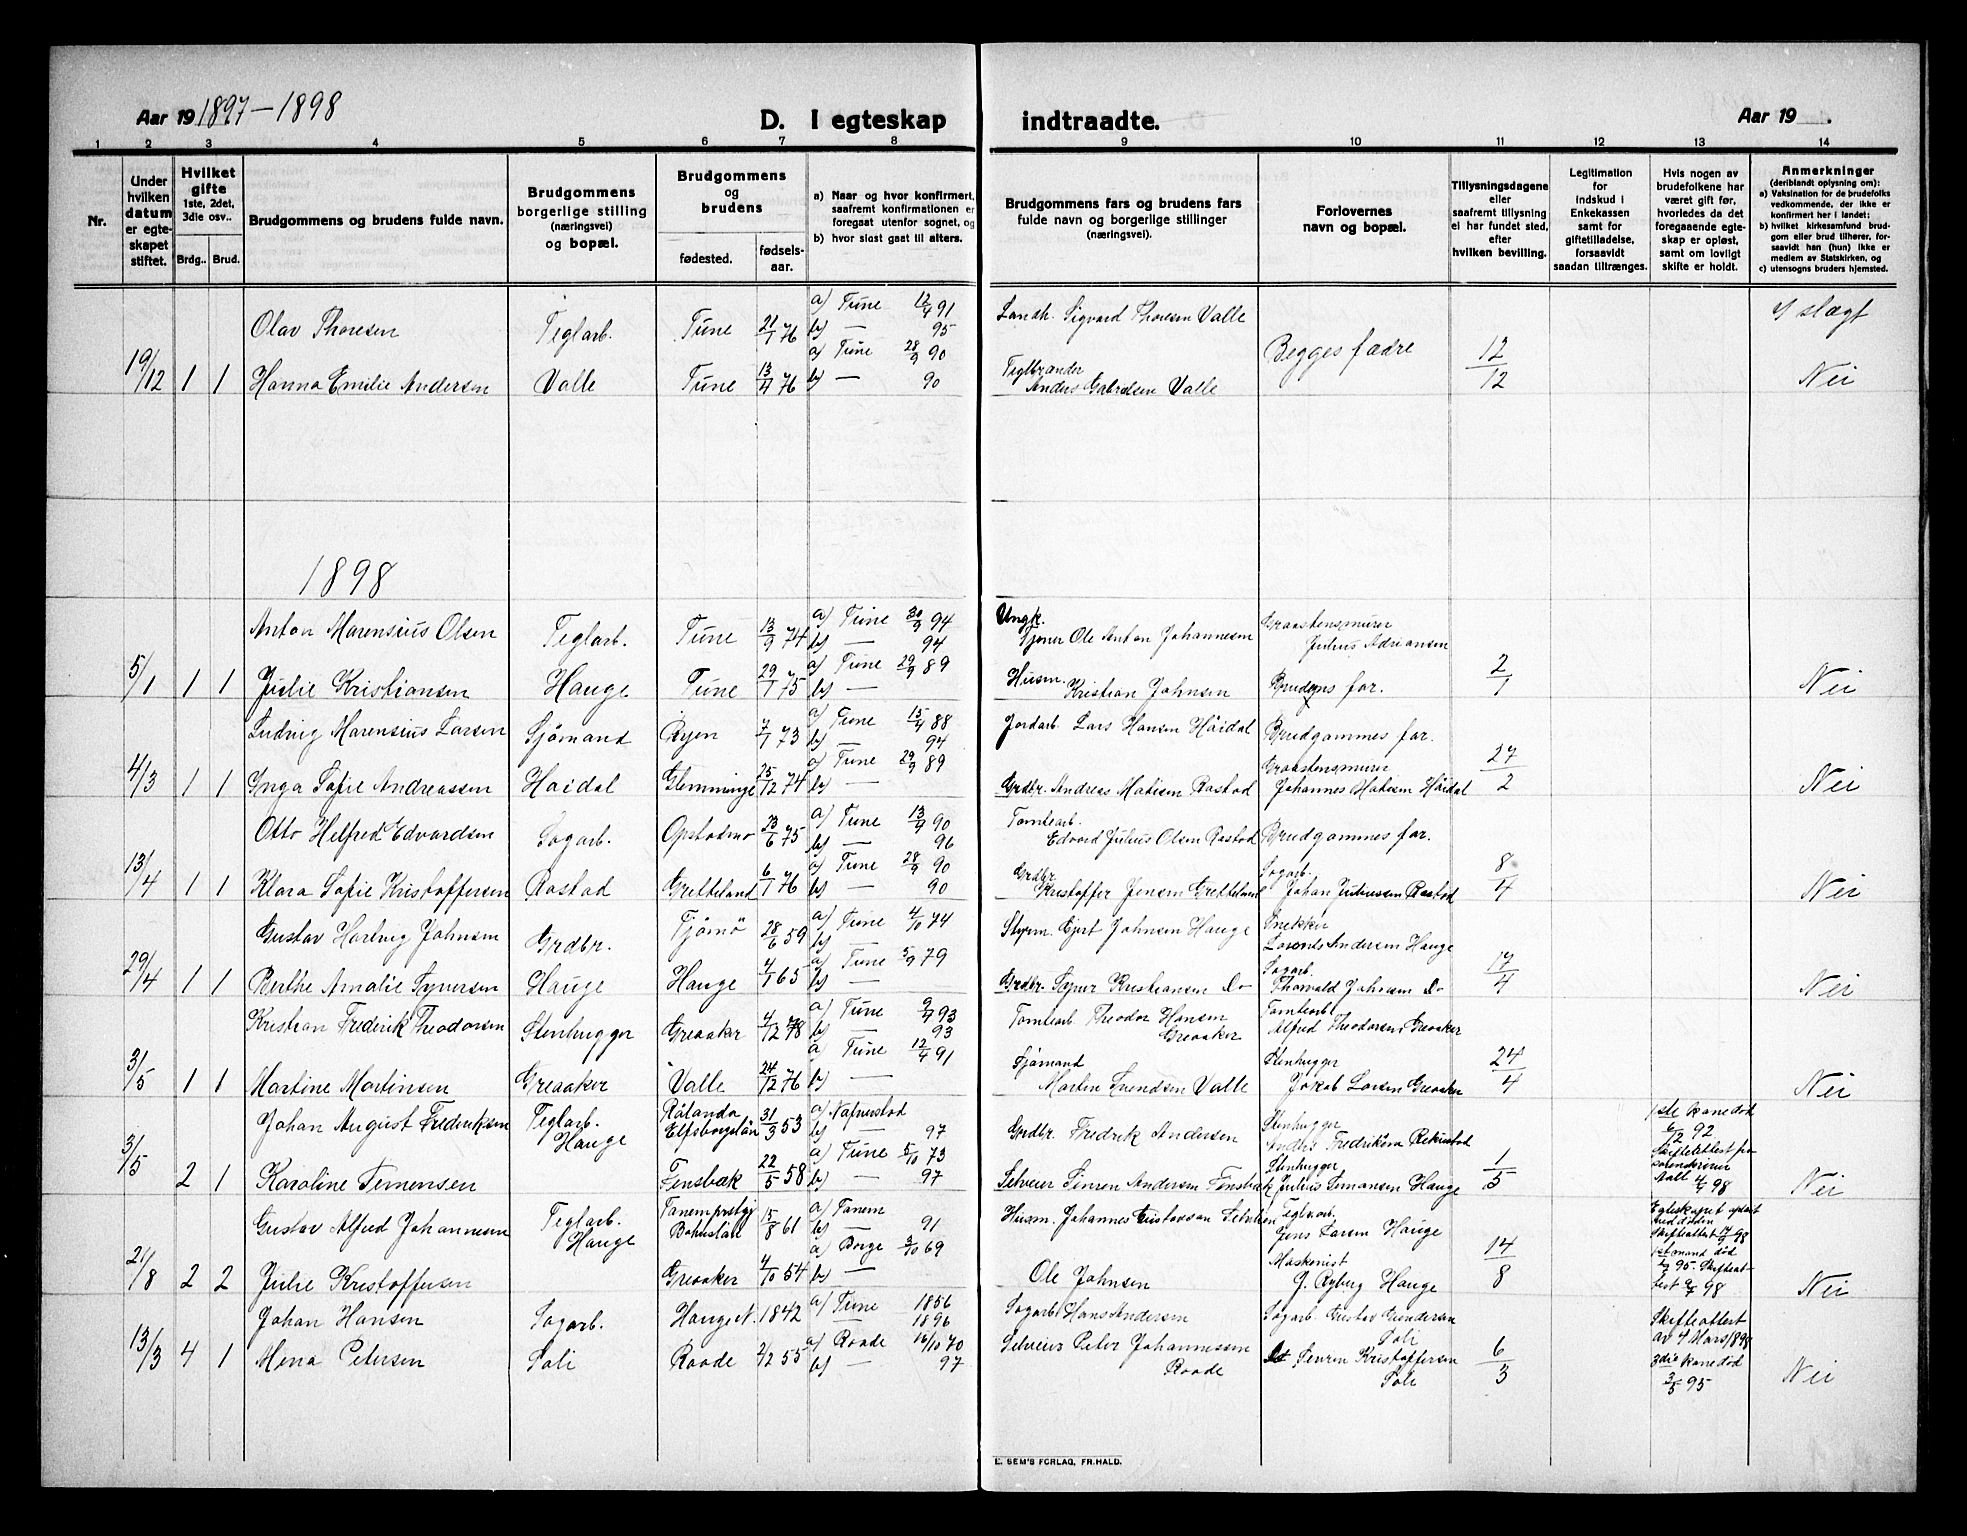 Aar 19 1897-1898
D. I egteskap indtraadte.
Aar 19
1 2 3 4 5 6 7 8 9 10 11 12 13 14
Nr.
Under hvilken datum er egteskapet stiftet.
Hvilket gifte 1ste, 2det, 3die osv..
Brdg.. Brud.
Brudgommens og brudens fulde navn.
Brudgommens borgerlige stilling (næringsvei) og bopæl.
Brudgommens og brudens
fødested. fødselsaar.
a) Naar og hvor konfirmert, saafremt konfirmationen er foregaat utenfor sognet, og
b) hvor sidst gaat til alters.
Brudgommens fars og brudens fars fulde navn og borgerlige stillinger (næringsvei).
Forlovernes navn og bopæl.
Tillysningsdagene eller saafremt tillysning ei har fundet sted, efter hvilken bevilling.
Legitimation for indskud i Enkekassen samt for giftetilladelse, forsaavidt saadan tiltrænges.
Hvis nogen av brudefolkene har været gift før, hvorledes da det foregaaende egteskap er opløst, samt om lovligt skifte er holdt.
Anmerkninger (deriblandt oplysning om): a) Vaksination for de brudefolks vedkommende, der ikke er konfirmert her i landet; b) hvilket kirkesamfund brudgom eller brud tilhører, forsaavidt han (hun) ikke er medlem av Statskirken, og c) utensogns bruders hjemsted.
Olav Thoresen Teglarb. Tune 21/1 76 a) Tune 12/4 91 b) — 95 Landh. Sigvard Thoresen Valle Begges fædre I slægt
19/12 1 1 Hanna Emilie Andersen Valle Tune 13/4 76 a) Tune 28/9 90 b) — 90 Teglbrænder Anders Gabrielsen Valle 12/12 Nei
1898
Anton Marensius Olsen Teglarb. Tune 13/9 74 a) Tune 30/9 94 b) — 94 Ungk. Tjener Ole Anton Johannesen Graastensmurer Julius Adriansen
5/1 1 1 Julie Kristiansen Hauge Tune 29/1 75 a) Tune 29/9 89 b) — Husm. Kristian Johnsen Brudens far. 2/1 Nei
Ludvig Marensius Larsen Sjømand Ryen 7/1 73 a) Tune 15/4 88 b) — 94 Jordarb. Lars Hansen Höidal Brudgommes far.
4/3 1 1 Inga Sofie Andreassen Høidal Glemminge 25/12 74 a) Tune 29/9 89 b) — Grdbr. Andreas Matisen Rostad Graastensmurer Johannes Matisen Höidal 27/2 Nei
Otto Helfred Edvardsen Sagarb. Opstadmo 23/6 75 a) Tune 13/4 90 b) — 96 Tomtearb. Edvard Julius Olsen Rostad Brudgommes far.
13/4 1 1 Klara Sofie Kristoffersen Rostad Gretteland 6/1 76 a) Tune 28/9 90 b) — 90 Grdbr Kristoffer Jensen Gretteland Sagarb. Johan Juliussen Rostad 8/4 Nei
Gustav Hartvig Johnsen Grdbr. Tjømø 28/6 59 a) Tune 4/10 74 b) Styrm. Ejert Johnsen Hauge Snekker Lorents Andersen Hauge
29/4 1 1 Berthe Amalie Syversen Hauge Hauge 4/1 65 a) Tune 5/9 79 b) — Grdbr. Syver Kristiansen Do Sagarb. Thorvald Johnsen Do 17/4 Nei
Kristian Frederik Theodorsen Stenhugger Greaaker 4/12 78 a) Tune 9/4 93 b) — 93 Tomtearb Theodor Hansen Greaaker Tomtearb Alfred Theodorsen Greaaker
3/5 1 1 Martine Martinsen Greaaker Valle 24/12 76 a) Tune 12/4 91 b) — Sjømand Martin Svendsen Valle Stenhugger Jakob Larsen Greaaker 24/4 Nei
Johan August Frederiksen Teglarb. Hauge Rölanda Elfsborgslän 31/3 53 a) b) — 97 Grdbr. Fredrik Andersen Stenhugger Anders Fredriksen 1ste kone död 6/12 92
3/5 2 1 Karoline Simensen 22/5 58 a) Tune 5/10 73 b) — 97 Selveier Simen Andersen Stenhugger Julius Simonsen Hauge 1/5 4/4 98 Nei
Gustav Alfred Johannesen Teglarb. Hauge Tanem Bohuslän 15/8 61 a) Tanem b) — 91 Husm. Johannes Gustavsson Teglarb. Jens Larsen Hauge Egteskapet oplöst ved döden Skifteattest 17/9 98
21/8 2 2 Julie Kristoffersen Greaaker 4/10 54 a) Borge 3/10 69 b) — Ole Johnsen Maskinist J. Ryberg Hauge 14/8 1st mand död 95 - Skifteattest 98 Nei
Johan Hansen Sagarb. Hauge N. 1842 a) Tune 1856 — 1896 Sagarb. Hans Andersen Sagarb. Gustav Gundersen Soli Skifteattest av 4 Mars 1898
13/3 4 1 Mina Petersen Soli Raade 2/2 55 a) Raade 16/10 70 b) — 97 Selveier Peter Johannessen Raade Sevrin Kristoffersen Soli 6/3 3die kone död 3/5 95 Nei
E. SEM'S FORLAG, FR.HALD.